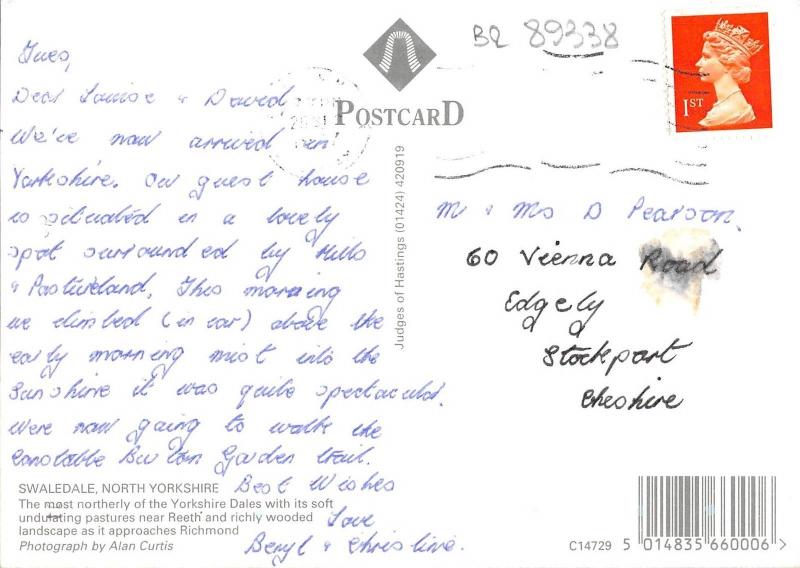 Tues,
Dear Louise & David
We've now arrived in
Yorkshire. Our guest house
is situated in a lovely
spot surrounded by Hills
& Pastureland. This morning
we climbed (in car) above the
early morning mist into the
Sunshine it was quite spectacular.
We're now going to walk the
Constable Burton Garden trail.
Best Wishes
Love
Beryl & Christine.
SWALEDALE, NORTH YORKSHIRE
The most northerly of the Yorkshire Dales with its soft
undulating pastures near Reeth and richly wooded
landscape as it approaches Richmond
Photograph by Alan Curtis
POSTCARD
Judges of Hastings (01424) 420919
BQ 89338
1ST
Mr & Ms D Pearson,
60 Vienna Road
Edgely
Stockport
Cheshire
C14729 5 014835 660006 >